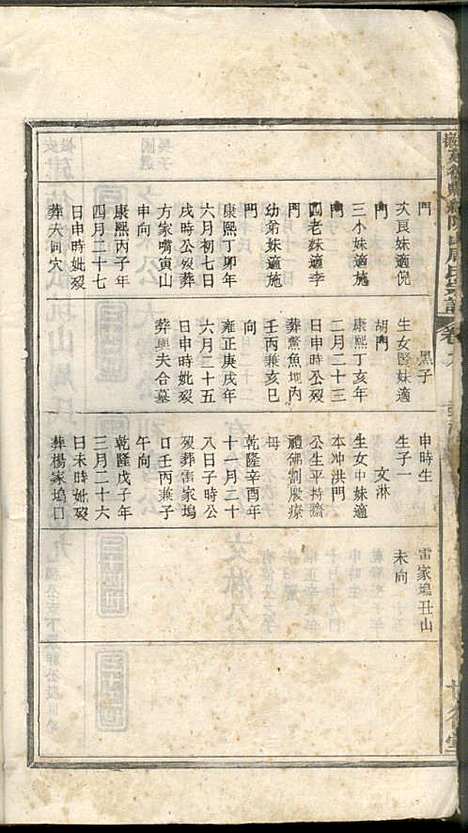 門
次良妹適倪
門
三小妹適施
門
四老妹適李
門
幼弟妹適施
門
康熙丁卯年
六月初七日
戌時公歿葬
方家嘴寅山
申向
康熙丙子年
四月二十七
日申時妣歿
葬夫同穴
黑子
生女醫妹適
胡門
康熙丁亥年
二月二十三
日申時公歿
葬鱉魚地內
壬丙兼亥巳
向
雍正庚戌年
六月二十五
日申時妣歿
葬與夫合墓
申時生
生子一
文淋
生女中妹適
本冲洪門
公生平持齋
禮佛割股療
母
乾隆辛酉年
十一月二十
八日子時公
歿葬雷家塢
口壬丙兼子
午向
乾隆戊子年
三月二十六
日未時妣歿
葬楊家塢口
雷家塢丑山
未向